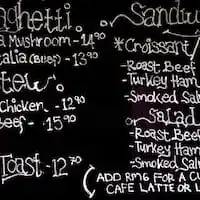 ghetti.
Mushroom - 14.90
alia (Beef) - 13.90
tew.
Chicken - 12.90
Beef - 15.90
Toast - 12.70
Sandw
*Croissant
- Roast Beef
- Turkey Ham
- Smoked Sal
Salad
- Roast Beef
- Turkey Ham
- Smoked Sal
ADD RM6 FOR A CU
CAFE LATTE OR L